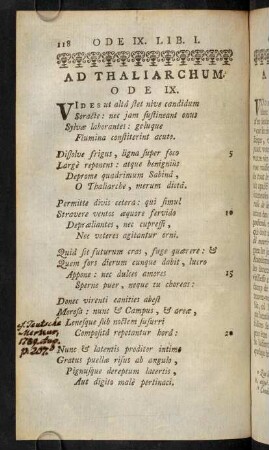 118 ODE IX. LIB. I.
AD THALIARCHUM.
ODE IX.
VIDES ut altâ stet nive candidum
Soracte: nec jam sustineant onus
Sylvæ laborantes: geluque
Flumina constiterint acuto.
Dissolve frigus, ligna super foco 5
Largè reponens: atque benigniùs
Deprome quadrimum Sabinâ,
O Thaliarche, merum diotâ.
Permitte divis cetera: qui simul
Stravere ventos æquore fervido 10
Depræliantes, nec cupressi,
Nec veteres agitantur orni.
Quid sit futurum cras, fuge quærere: &
Quem fors dierum cunque dabit, lucro
Appone: nec dulces amores 15
Sperne puer, neque tu choreas:
Donec virenti canities abest
Morosa: nunc & Campus, & areæ,
Lenesque sub noctem susurri
Compositâ repetantur horâ: 20
Nunc & latentis proditor intimo
Gratus puellæ risus ab angulo,
Pignusque dereptum lacertis,
Aut digito malè pertinaci.
cf. Teutsche
Merkur,
1789. Aug.
p. 207.